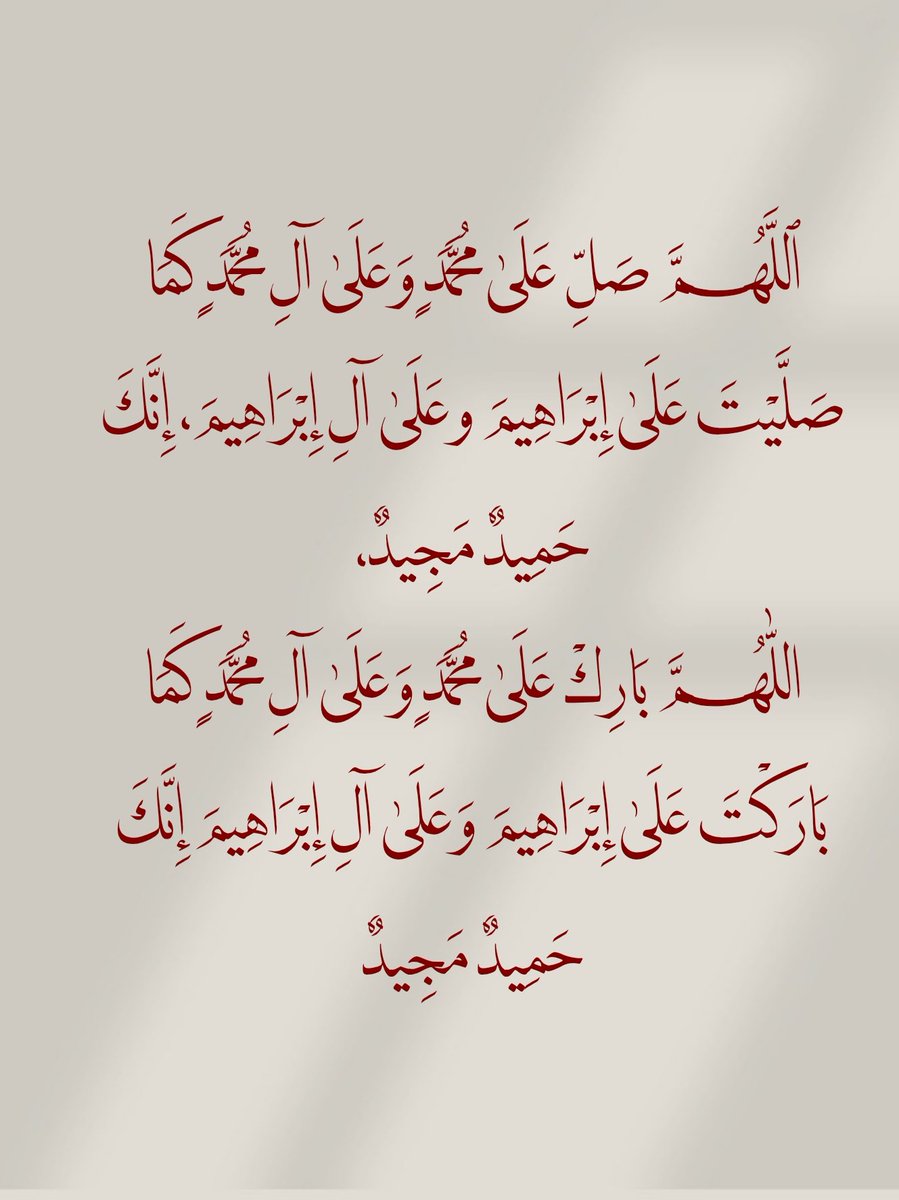 ٱللَّهُـمَّ صَلِّ عَلَىٰ مُحَمَّدٍ وَعَلَىٰ آلِ مُحَمَّدٍ كَمَا
صَلَّيْتَ عَلَىٰ إِبْرَاهِيمَ وعَلَىٰ آلِ إِبْرَاهِيمَ، إِنَّكَ
حَمِيدٌ مَجِيدٌ،
اللّٰهُـمَّ بَارِكْ عَلَىٰ مُحَمَّدٍ وَعَلَىٰ آلِ مُحَمَّدٍ كَمَا
بَارَكْتَ عَلَىٰ إِبْرَاهِيمَ وَعَلَىٰ آلِ إِبْرَاهِيمَ إِنَّكَ
حَمِيدٌ مَجِيدٌ